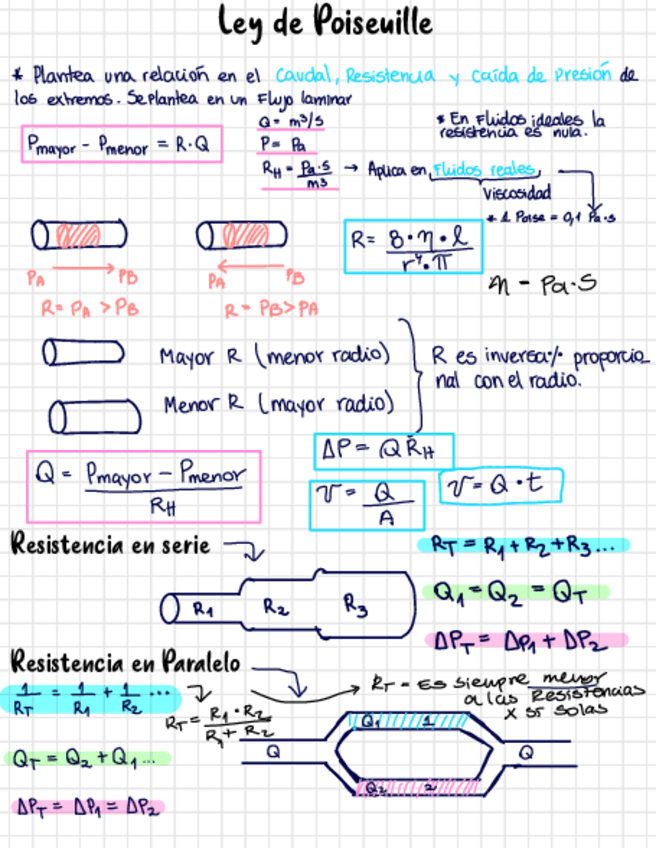 Ley de Poiseuille
* Plantea una relación en el Caudal, Resistencia y caída de presión de
los extremos. Se plantea en un Flujo laminar
Pmayor - Pmenor = R·Q
Q = m³/s
P = Pa
RH = Pa·s / m3 → Aplica en Fluidos reales
* En Fluidos ideales la
resistencia es nula.
Viscosidad
* 1 Poise = 0,1 Pa·s
PA → PB
R = PA > PB
PA ← PB
R = PB > PA
R = 8·η·l / r⁴·π
η - Pa·s
Mayor R (menor radio)
Menor R (mayor radio)
R es inversa% proporcio
nal con el radio.
Q = Pmayor - Pmenor / RH
ΔP = Q RH
v = Q / A
v = Q·t
Resistencia en serie
R1 R2 R3
RT = R1 + R2 + R3...
Q1 = Q2 = QT
ΔPT = ΔP1 + ΔP2
Resistencia en Paralelo
1/RT = 1/R1 + 1/R2 ...
RT = R1·R2 / R1 + R2
RT - Es siempre menor
a las Resistencias
x si solas
QT = Q2 + Q1...
ΔPT = ΔP1 = ΔP2
Q
Q1 1
Q2 2
Q